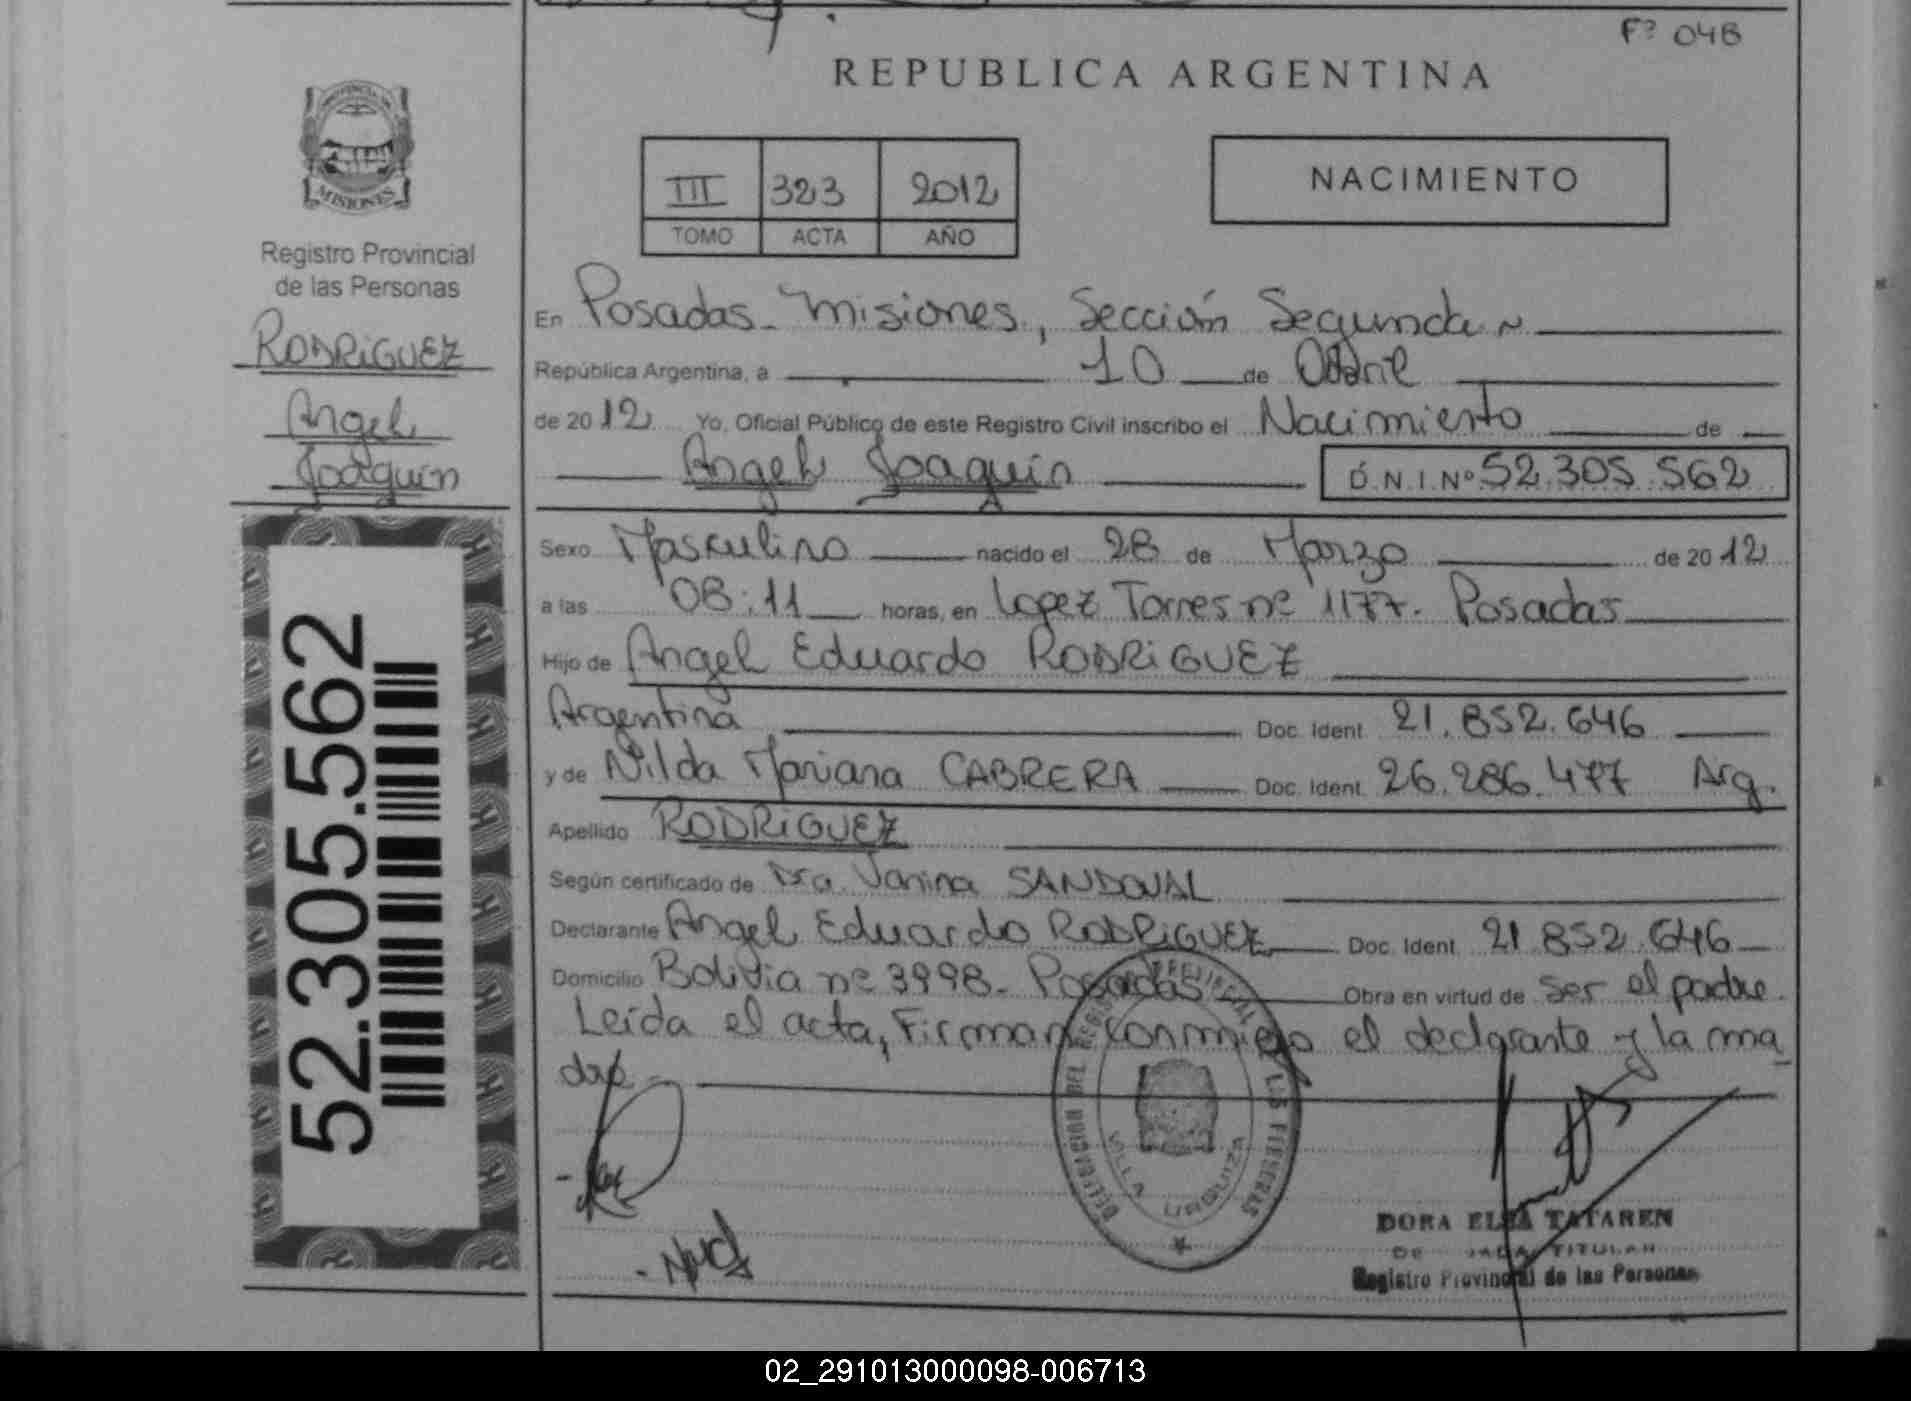 Fº 048
REPUBLICA ARGENTINA
PROVINCIA DE
MISIONES
III 323 2012
TOMO ACTA AÑO
NACIMIENTO
Registro Provincial
de las Personas
RODRIGUEZ
Angel
Joaquín
52.305.562
En Posadas - Misiones, Sección Segunda
República Argentina, a 10 de Abril
de 2012 Yo, Oficial Público de este Registro Civil inscribo el Nacimiento de
Angel Joaquín D.N.I.Nº 52.305.562
Sexo Masculino nacido el 28 de Marzo de 2012
a las 08:11 horas, en Lopez Torres nº 1177. Posadas
Hijo de Angel Eduardo RODRIGUEZ
Argentina Doc. Ident. 21.852.646
y de Nilda Mariana CABRERA Doc. Ident. 26.286.477 Arg.
Apellido RODRIGUEZ
Según certificado de Dra. Vanina SANDOVAL
Declarante Angel Eduardo RODRIGUEZ Doc. Ident. 21.852.646
Domicilio Bolivia nº 3998 - Posadas Obra en virtud de ser el padre.
Leída el acta, Firman conmigo el declarante y la ma
dre
DELEGACION DEL REGISTRO PROVINCIAL DE LAS PERSONAS
VILLA URQUIZA
DORA ELSA TATAREN
TITULAR
Registro Provincial de las Personas
02_291013000098-006713